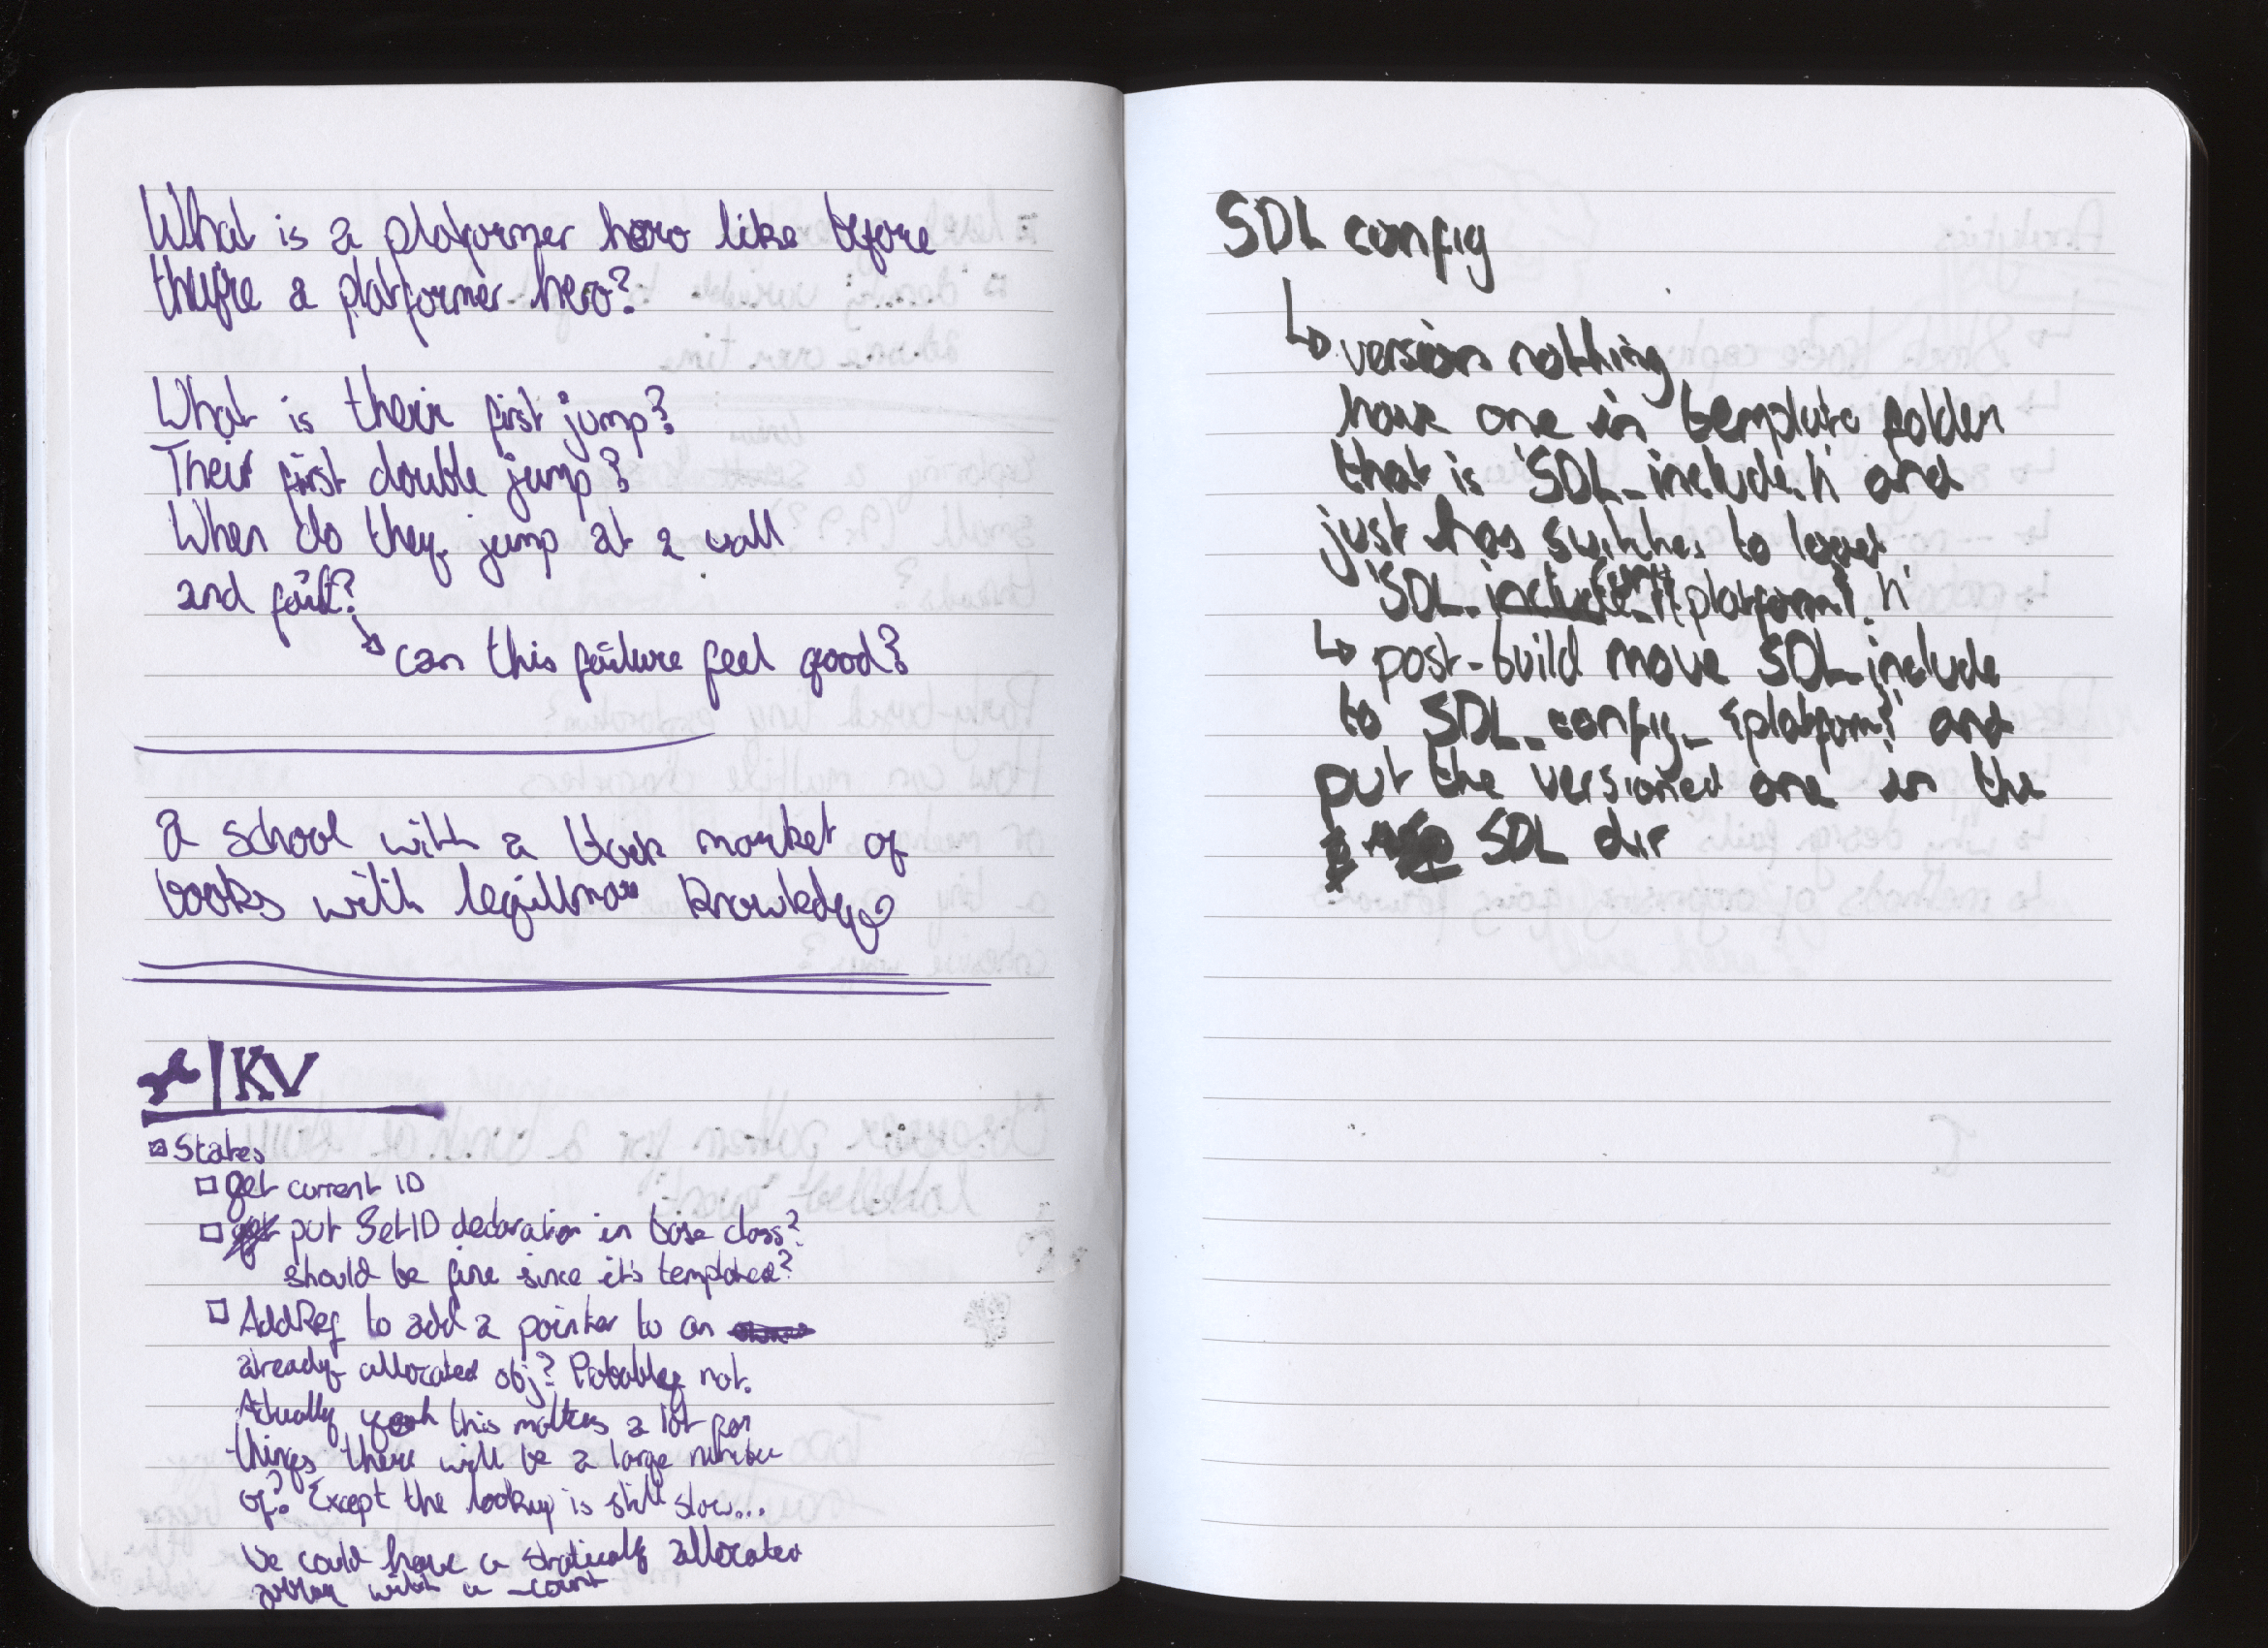 What is a platformer hero like before
they're a platformer hero?
What is their first jump?
Their first double jump?
When do they jump at a wall
and fail?
can this failure feel good?
a school with a market of
books with knowledge
KV
States
get current ID
put SetID declaration in base class?
should be fine since it's templated?
AddRef to add a pointer to an
already allocated obj? Probably not.
Actually yeah this matters a lot for
things there will be a large number
of? Except the lookup is still slow...
we could have a statically allocated
array with a _count
SDL config
version nothing
have one in template folder
that is 'SDL_include.h' and
just has switches to load
'SDL_config_{platform}.h'
post-build move SDL_include
to SDL_config_{platform} and
put the versioned one in the
SDL dir